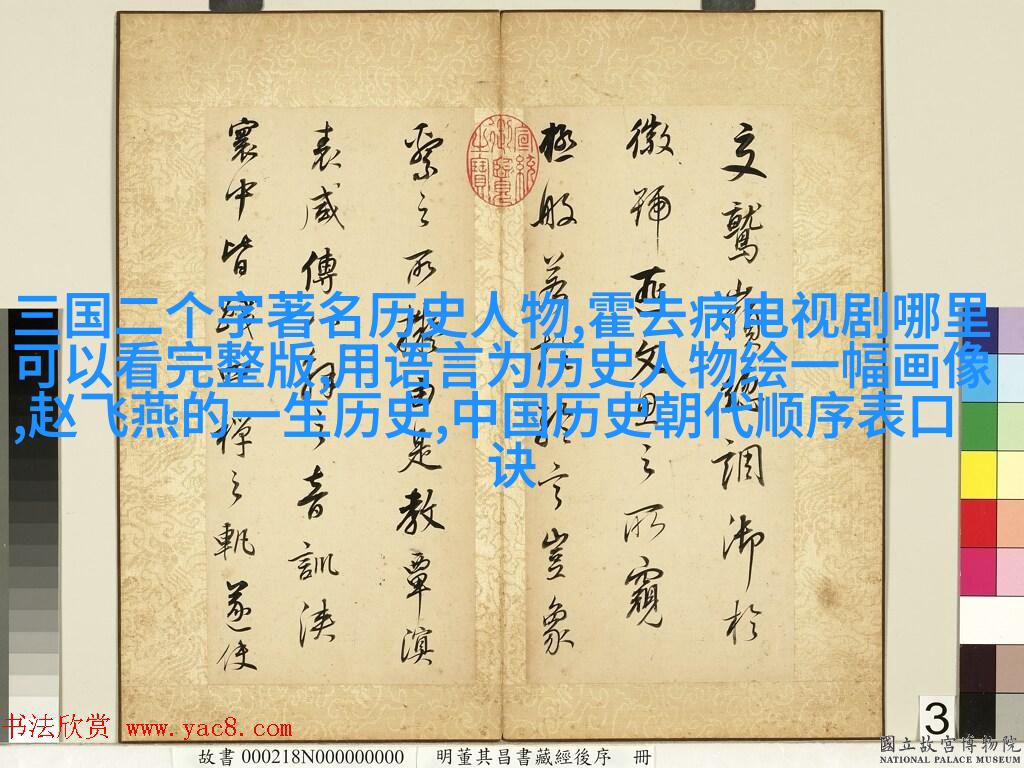 三国二个字著名历史人物,霍去病电视剧哪里
可以看完整版,用语言为历史人物绘一幅画像
,赵飞燕的一生历史,中国历史朝代顺序表口
诀
文鷲嶺揚鑣調御於
徽號延文思之所窺
極般若
於言豈象
繫之所擬由是教覃溟
表咸傳
之音訓浹
寰中皆
禪之軌遂使
3
书法欣赏 www.yac8.com
故書 000218N000000000 明董其昌書藏經後序 冊
國立故宮博物院
NATIONAL PALACE MUSEUM